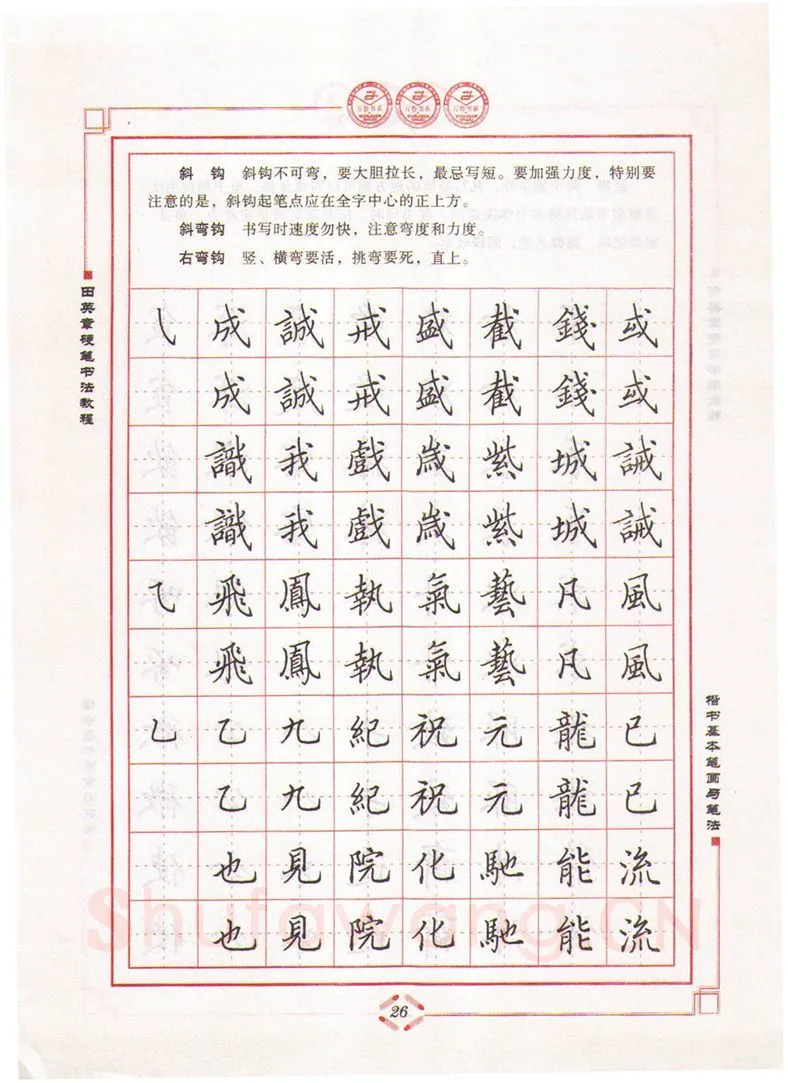 斜 钩 斜钩不可弯，要大胆拉长，最忌写短。要加强力度，特别要
注意的是，斜钩起笔点应在全字中心的正上方。
斜弯钩 书写时速度勿快，注意弯度和力度。
右弯钩 竖、横弯要活，挑弯要死，直上。
田英章硬笔书法教程
㇂ 成 誠 戒 盛 截 錢 或
成 誠 戒 盛 截 錢 或
識 我 戲 歲 紫 城 誡
識 我 戲 歲 紫 城 誡
⺄ 飛 鳳 執 氣 藝 凡 風
飛 鳳 執 氣 藝 凡 風
乚 乙 九 紀 祝 元 龍 已
乙 九 紀 祝 元 龍 已
也 見 院 化 馳 能 流
也 見 院 化 馳 能 流
楷书基本笔画与笔法
Shufawang.CN
26